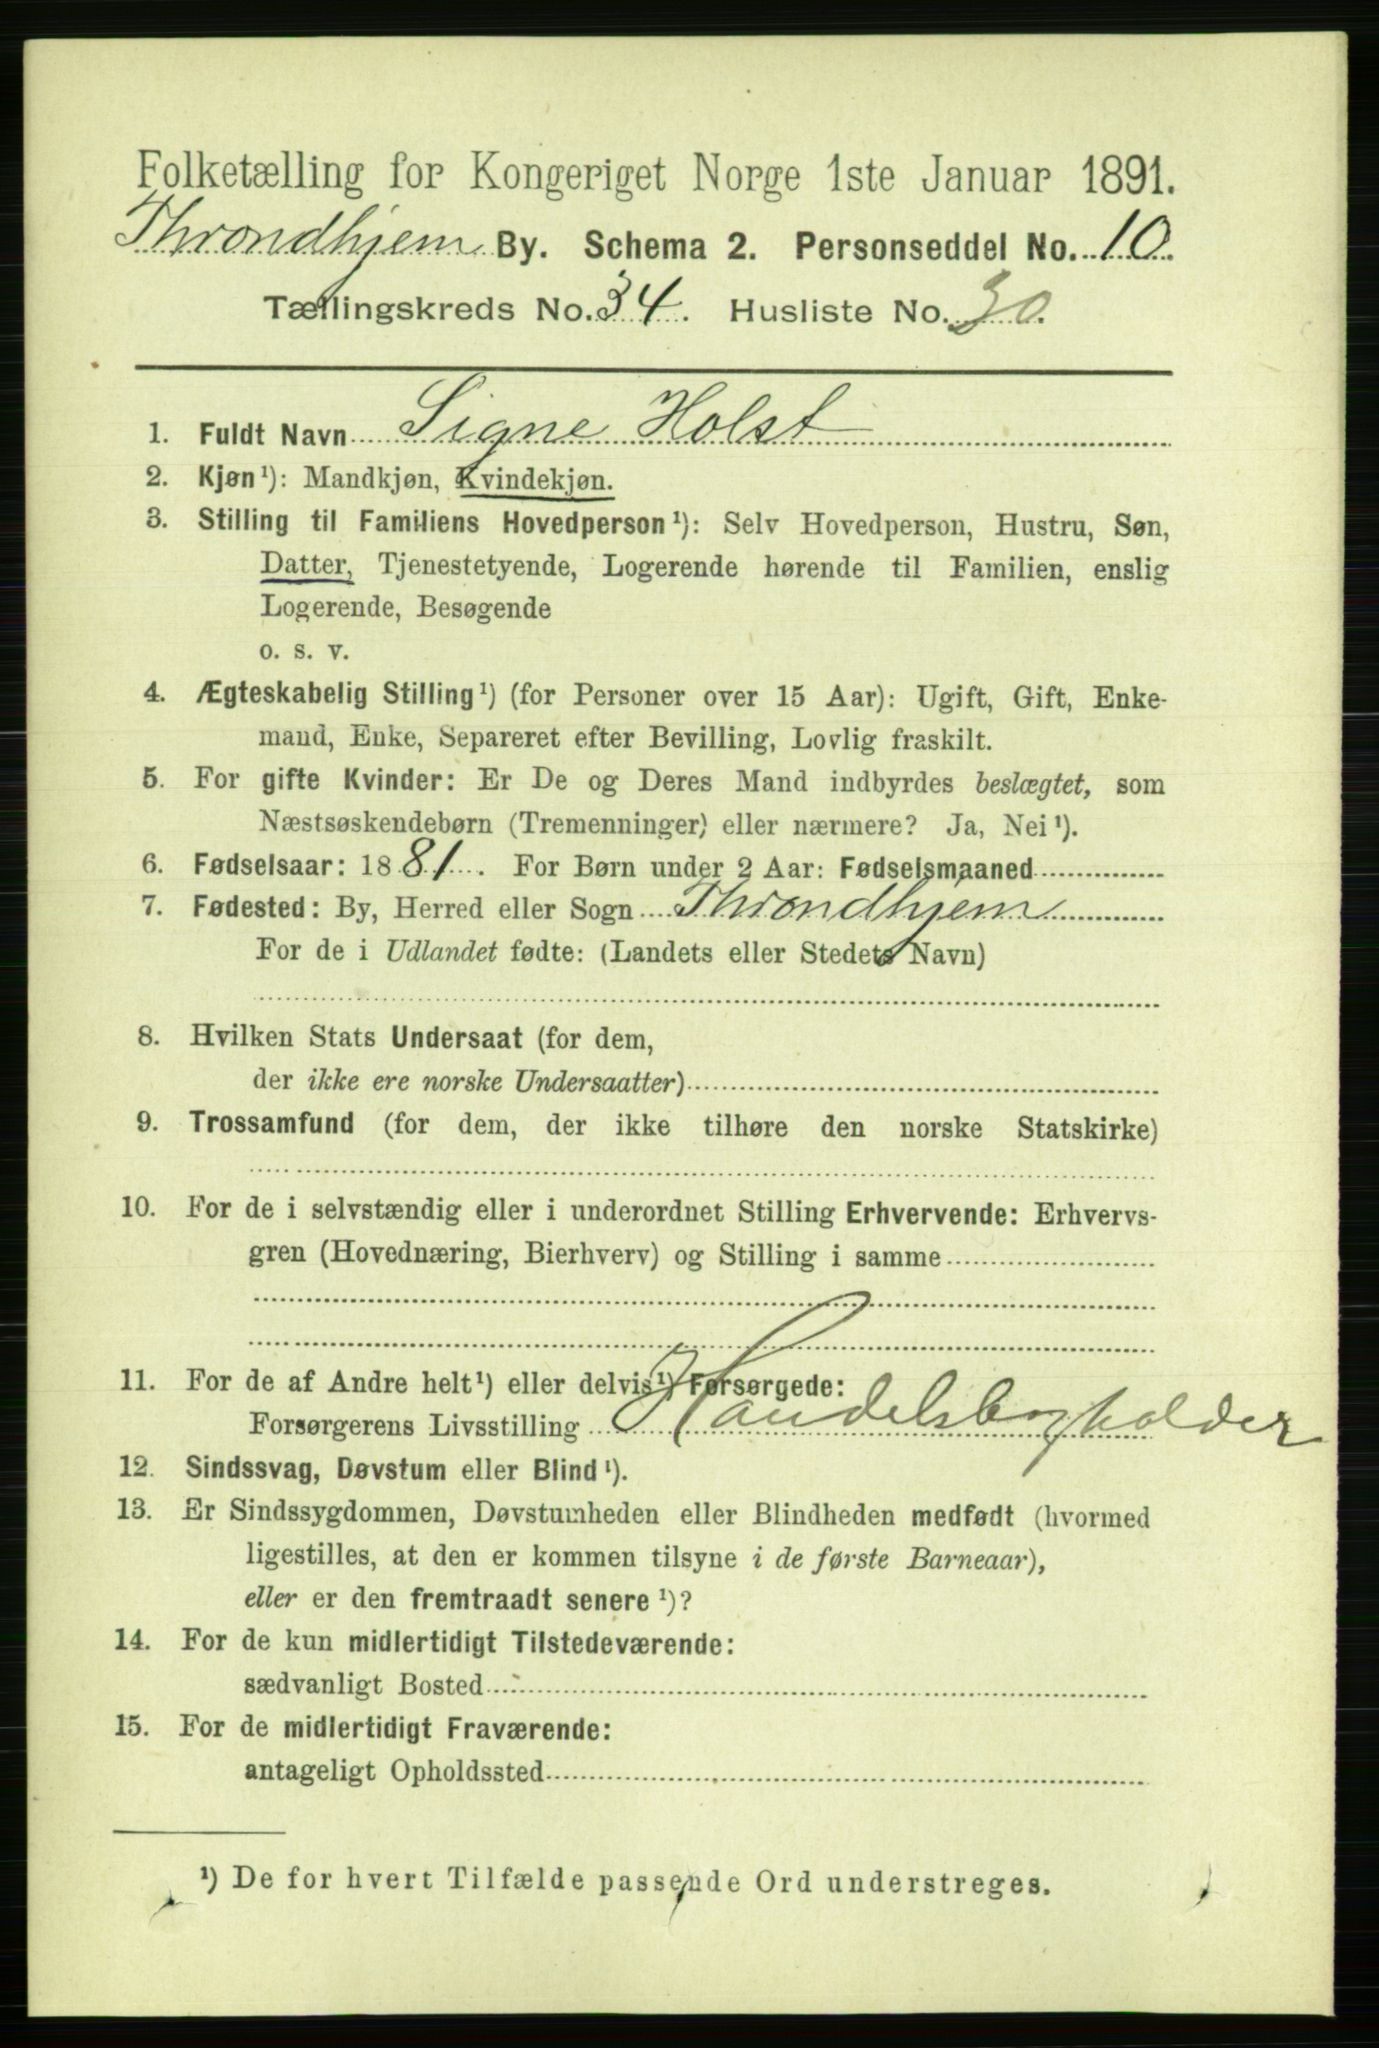 Folketælling for Kongeriget Norge 1ste Januar 1891.
Throndhjem By. Schema 2. Personseddel No. 10.
Tællingskreds No. 34. Husliste No. 30.
1. Fuldt Navn Signe Holst
2. Kjøn¹): Mandkjøn, Kvindekjøn.
3. Stilling til Familiens Hovedperson¹): Selv Hovedperson, Hustru, Søn,
Datter, Tjenestetyende, Logerende hørende til Familien, enslig
Logerende, Besøgende
o. s. v.
4. Ægteskabelig Stilling¹) (for Personer over 15 Aar): Ugift, Gift, Enke-
mand, Enke, Separeret efter Bevilling, Lovlig fraskilt.
5. For gifte Kvinder: Er De og Deres Mand indbyrdes beslægtet, som
Næstsøskendebørn (Tremenninger) eller nærmere? Ja, Nei¹).
6. Fødselsaar: 1881. For Børn under 2 Aar: Fødselsmaaned
7. Fødested: By, Herred eller Sogn Throndhjem
For de i Udlandet fødte: (Landets eller Stedets Navn)
8. Hvilken Stats Undersaat (for dem,
der ikke ere norske Undersaatter)
9. Trossamfund (for dem, der ikke tilhøre den norske Statskirke)
10. For de i selvstændig eller i underordnet Stilling Erhvervende: Erhvervs-
gren (Hovednæring, Bierhverv) og Stilling i samme
11. For de af Andre helt¹) eller delvis¹) Forsørgede:
Forsørgerens Livsstilling Handelsbogholder
12. Sindssvag, Døvstum eller Blind¹).
13. Er Sindssygdommen, Døvstumheden eller Blindheden medfødt (hvormed
ligestilles, at den er kommen tilsyne i de første Barneaar),
eller er den fremtraadt senere¹)?
14. For de kun midlertidigt Tilstedeværende:
sædvanligt Bosted
15. For de midlertidigt Fraværende:
antageligt Opholdssted
¹) De for hvert Tilfælde passende Ord understreges.